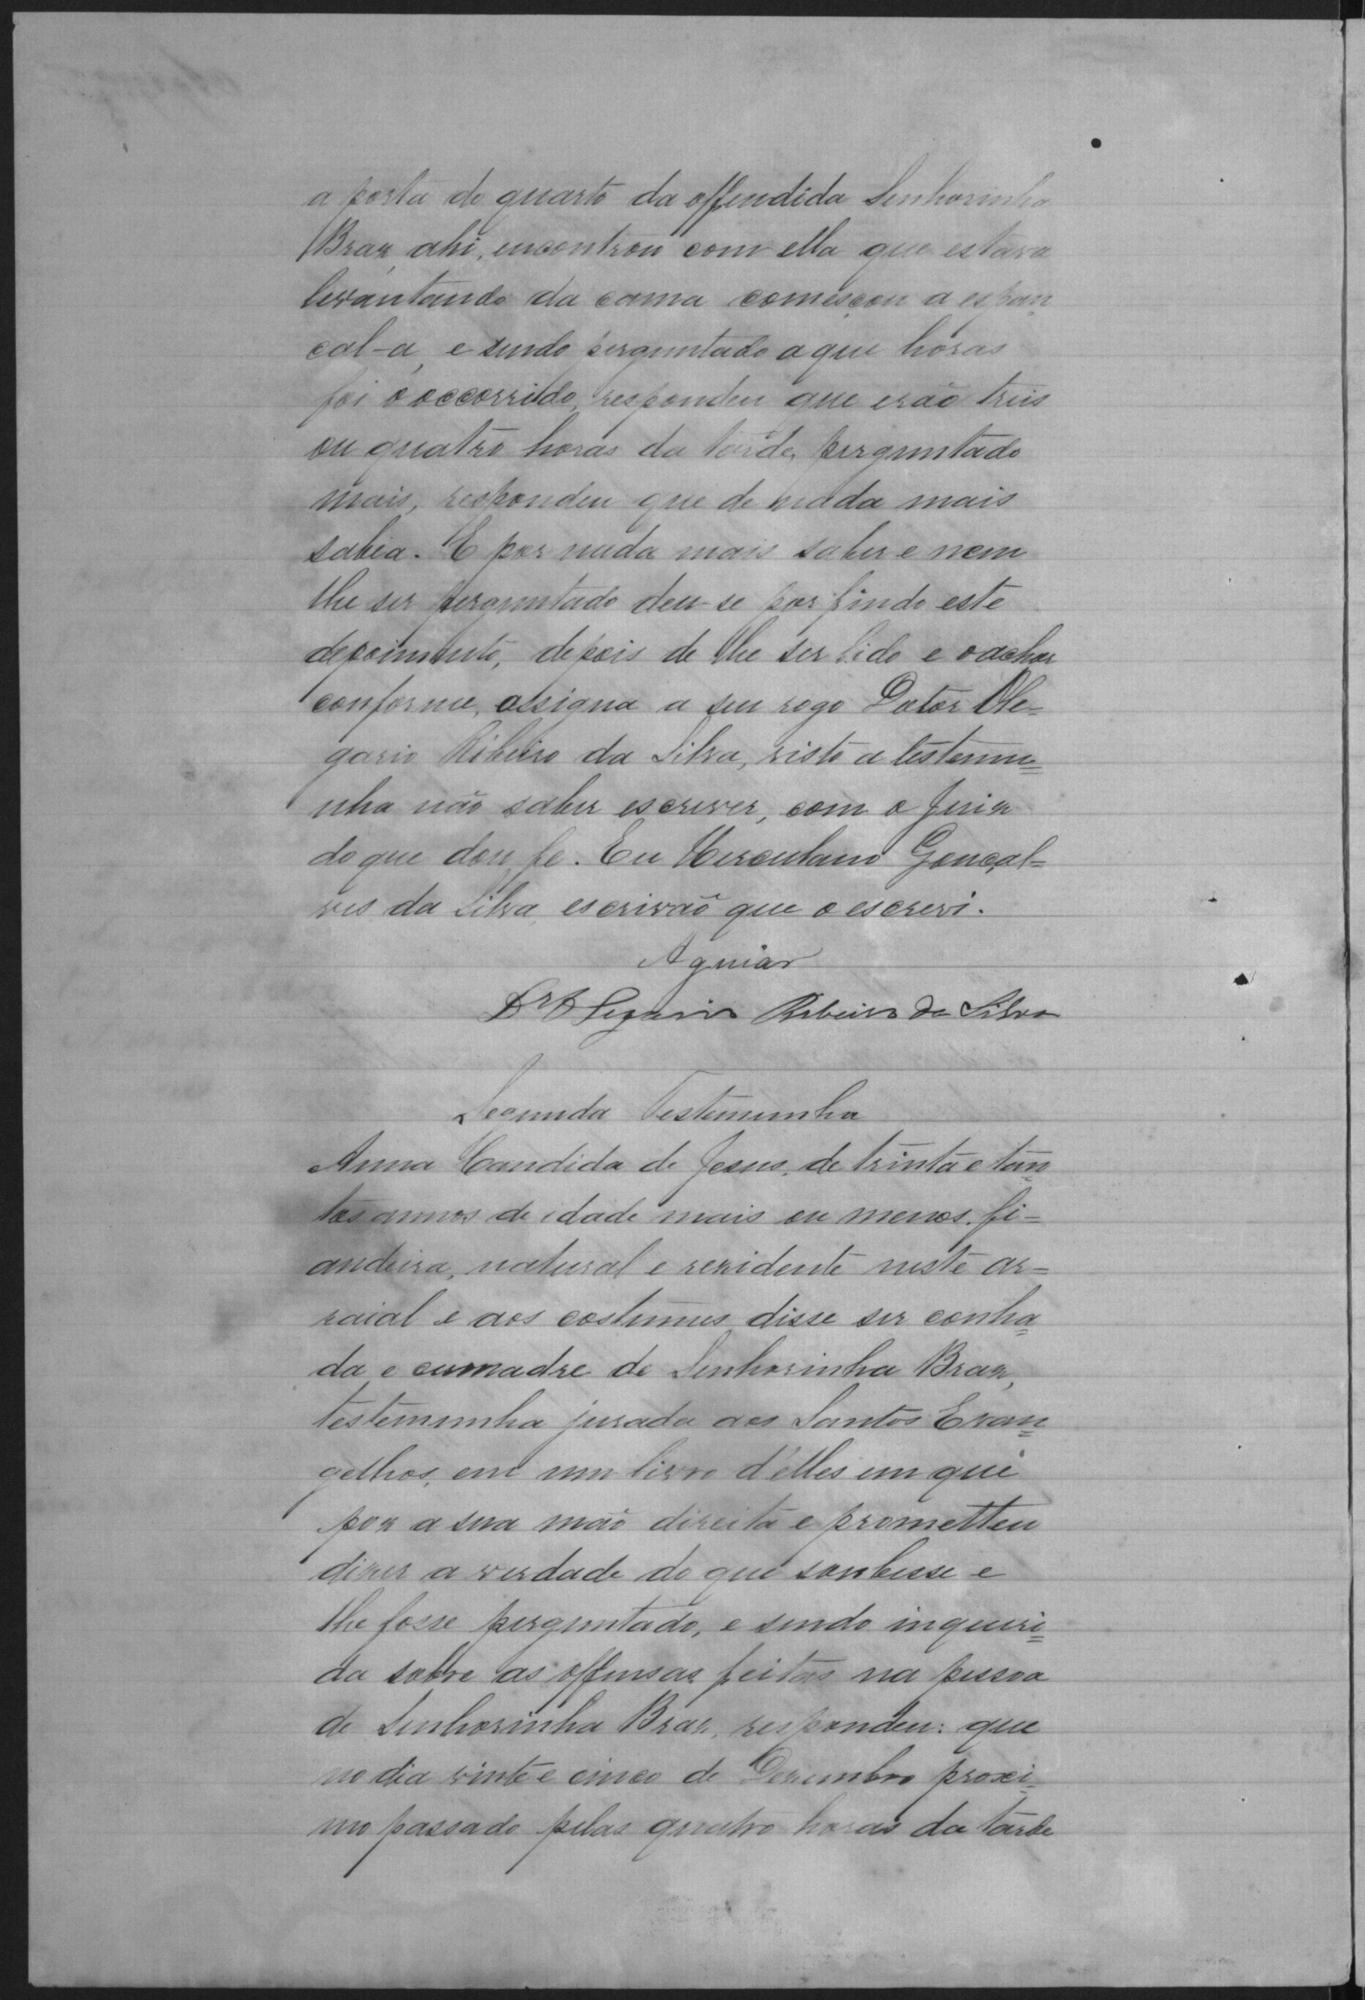 a porta do quarto da offendida Senhorinha
Braz ahi, encontrou com ella que estava
levantando da cama comesçou a espan
cal-a, e sendo perguntado a que horas
foi o occorrido, respondeu que erão treis
ou quatro horas da tarde, perguntado
mais, respondeu que de nada mais
sabia. E por nada mais saber e nem
lhe ser perguntado deu-se por findo este
depoimento, depois de lhe ser lido e o achar
conforme, assigna a seu rogo Doutor Ole-
gario Ribeiro da Silva, visto a testemu=
nha não saber escrever, com o Juiz
do que dou fe. Eu Herculano Gonçal=
ves da Silva, escrivão que o escrevi.
Aguiar
Dr Olegario Ribeiro da Silva
Segunda Testemunha
Anna Candida de Jesus, de trinta e tan
tos annos de idade mais ou menos, fi=
andeira, natural e rezidente neste ar=
raial e aos costumes disse ser conha
da e cumadre de Senhorinha Braz,
testemunha jurada aos Santos Evan=
gelhos, em um livro d'elles em que
poz a sua mão direita e prometteu
dizer a verdade do que soubesse e
lhe fosse perguntado, e sendo inqueri=
da sobre as offensas feitas na pessoa
de Senhorinha Braz, respondeu: que
no dia vinte e cinco de Dezembro proxi-
mo passado pelas quatro horas da tarde